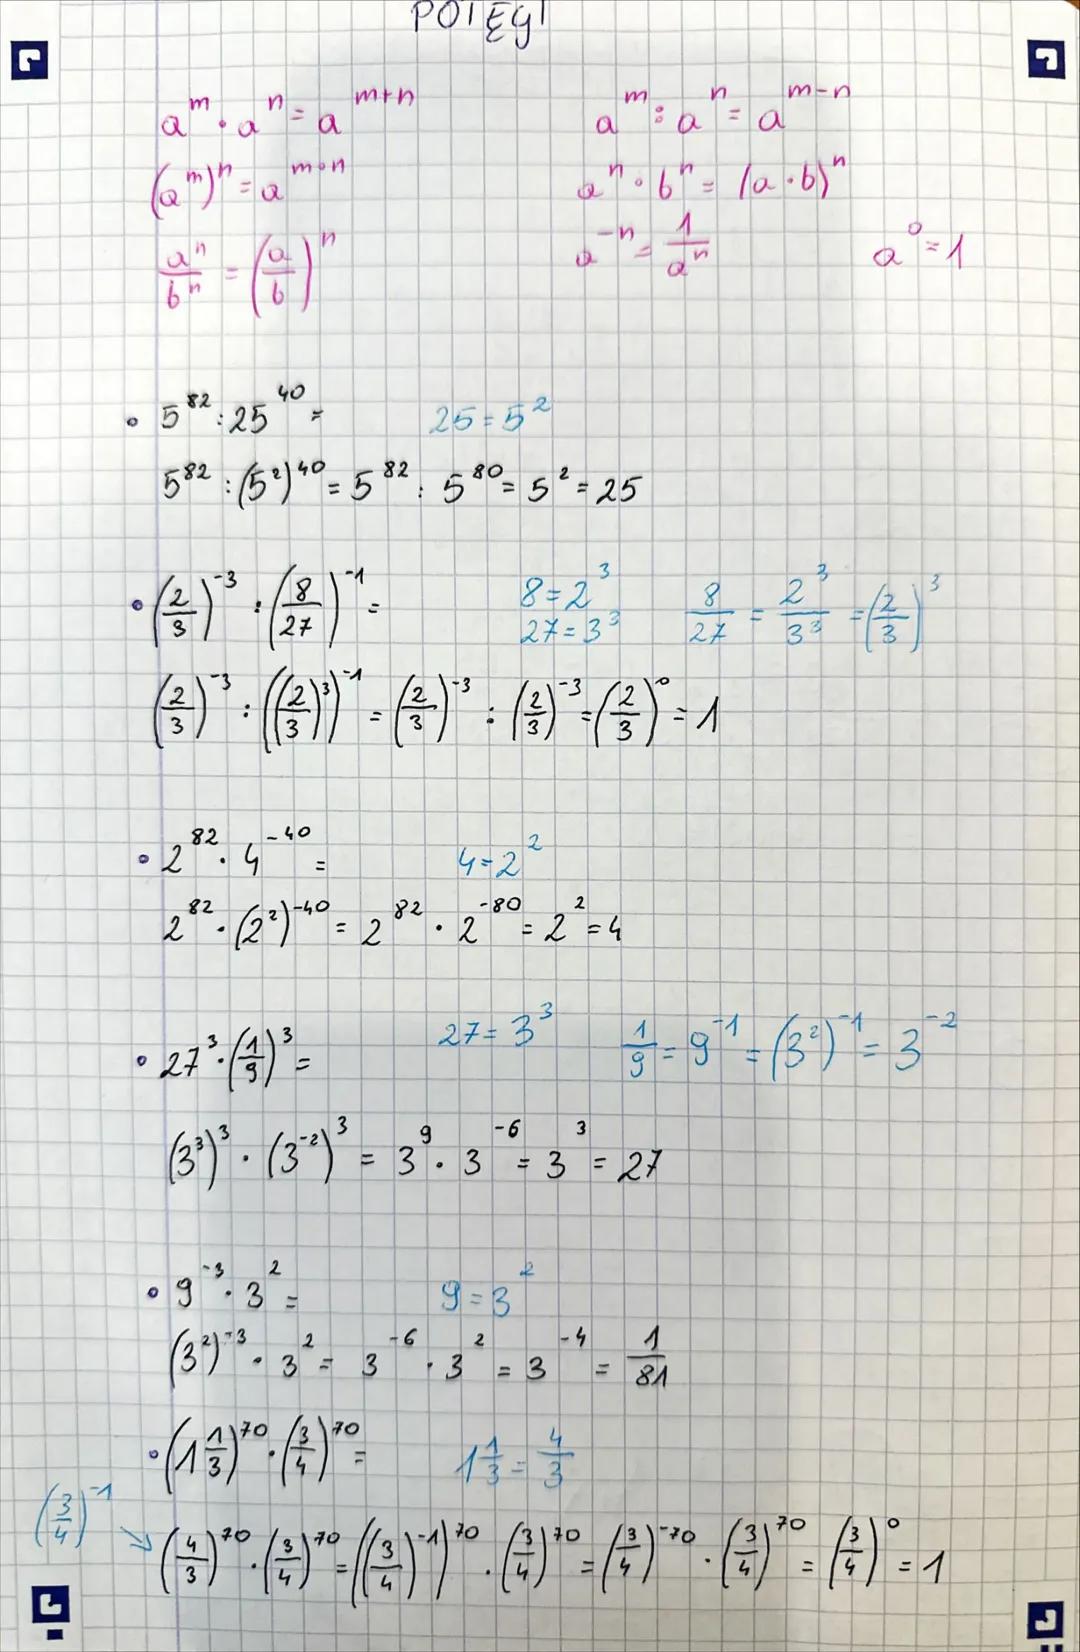 POTĘGI
a^m · a^n = a^(m+n)    a^m : a^n = a^(m-n)
(a^m)^n = a^(m·n)    a^n · b^n = (a·b)^n
a^n/b^n = (a/b)^n    a^(-n) = 1/a^n    a^0 = 1
• 5^82 : 25^40 =    25 = 5^2
5^82 : (5^2)^40 = 5^82 : 5^80 = 5^2 = 25
• (2/3)^(-3) : (8/27)^(-1) =    8 = 2^3    8/27 = 2^3/3^3 = (2/3)^3
27 = 3^3
(2/3)^(-3) : ((2/3)^3)^(-1) = (2/3)^(-3) : (2/3)^(-3) = (2/3)^0 = 1
• 2^82 · 4^(-40) =    4 = 2^2
2^82 · (2^2)^(-40) = 2^82 · 2^(-80) = 2^2 = 4
• 27^3 · (1/9)^3 =    27 = 3^3    1/9 = 9^(-1) = (3^2)^(-1) = 3^(-2)
(3^3)^3 · (3^(-2))^3 = 3^9 · 3^(-6) = 3^3 = 27
• 9^(-3) · 3^2 =    9 = 3^2
(3^2)^(-3) · 3^2 = 3^(-6) · 3^2 = 3^(-4) = 1/81
• (1 1/3)^70 · (3/4)^70 =    1 1/3 = 4/3
(3/4)^(-1)
(4/3)^70 · (3/4)^70 = ((3/4)^(-1))^70 · (3/4)^70 = (3/4)^(-70) · (3/4)^70 = (3/4)^0 = 1